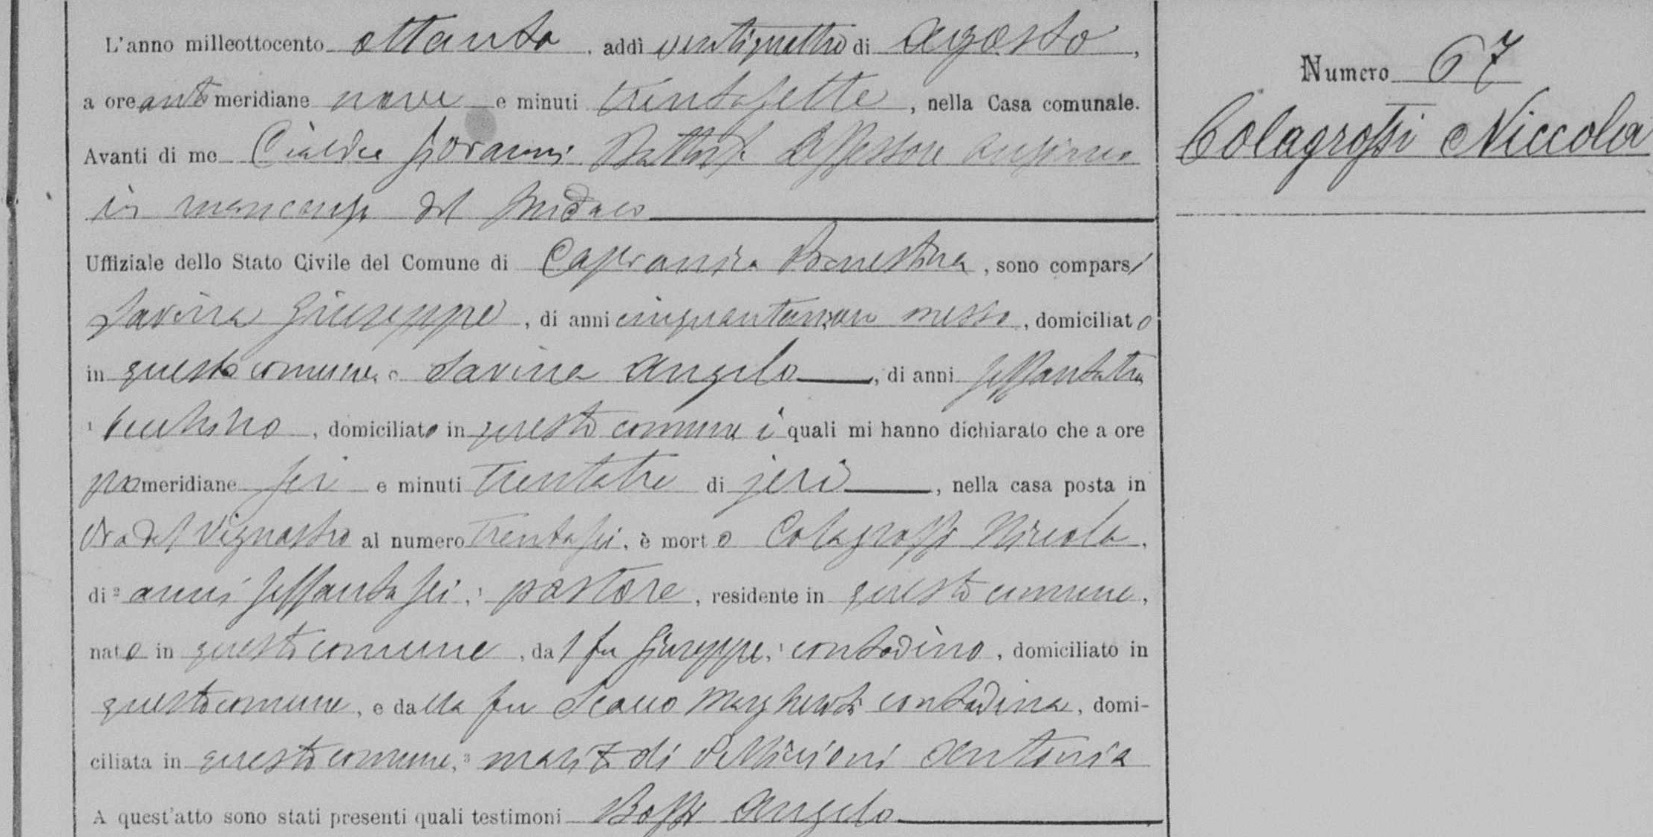 Numero 67
Colagrossi Niccola
L'anno milleottocento ottanta, addì ventiquattro di Agosto,
a ore anti meridiane nove e minuti trentasette, nella Casa comunale.
Avanti di me Giovanni Battista Assessore anziano
in mancanza del Sindaco
Uffiziale dello Stato Civile del Comune di Capranica Prenestina, sono comparsi
Savina Giuseppe, di anni cinquantanove messo, domiciliato
in questo comune e Savina Angelo, di anni sessantatre
domiciliato in questo comune i quali mi hanno dichiarato che a ore
pomeridiane sei e minuti trentatre di jeri, nella casa posta in
Via del Vignastro al numero trentasei, è morto Colagrossi Niccola,
di ² anni sessantasei, ¹ pastore, residente in questo comune,
nato in questo comune, dal fu Giuseppe, ¹ contadino, domiciliato in
questo comune, e dalla fu Scacco Margherita contadina, domi-
ciliata in questo comune, ³ marito di Antonia
A quest'atto sono stati presenti quali testimoni Bossi Angelo